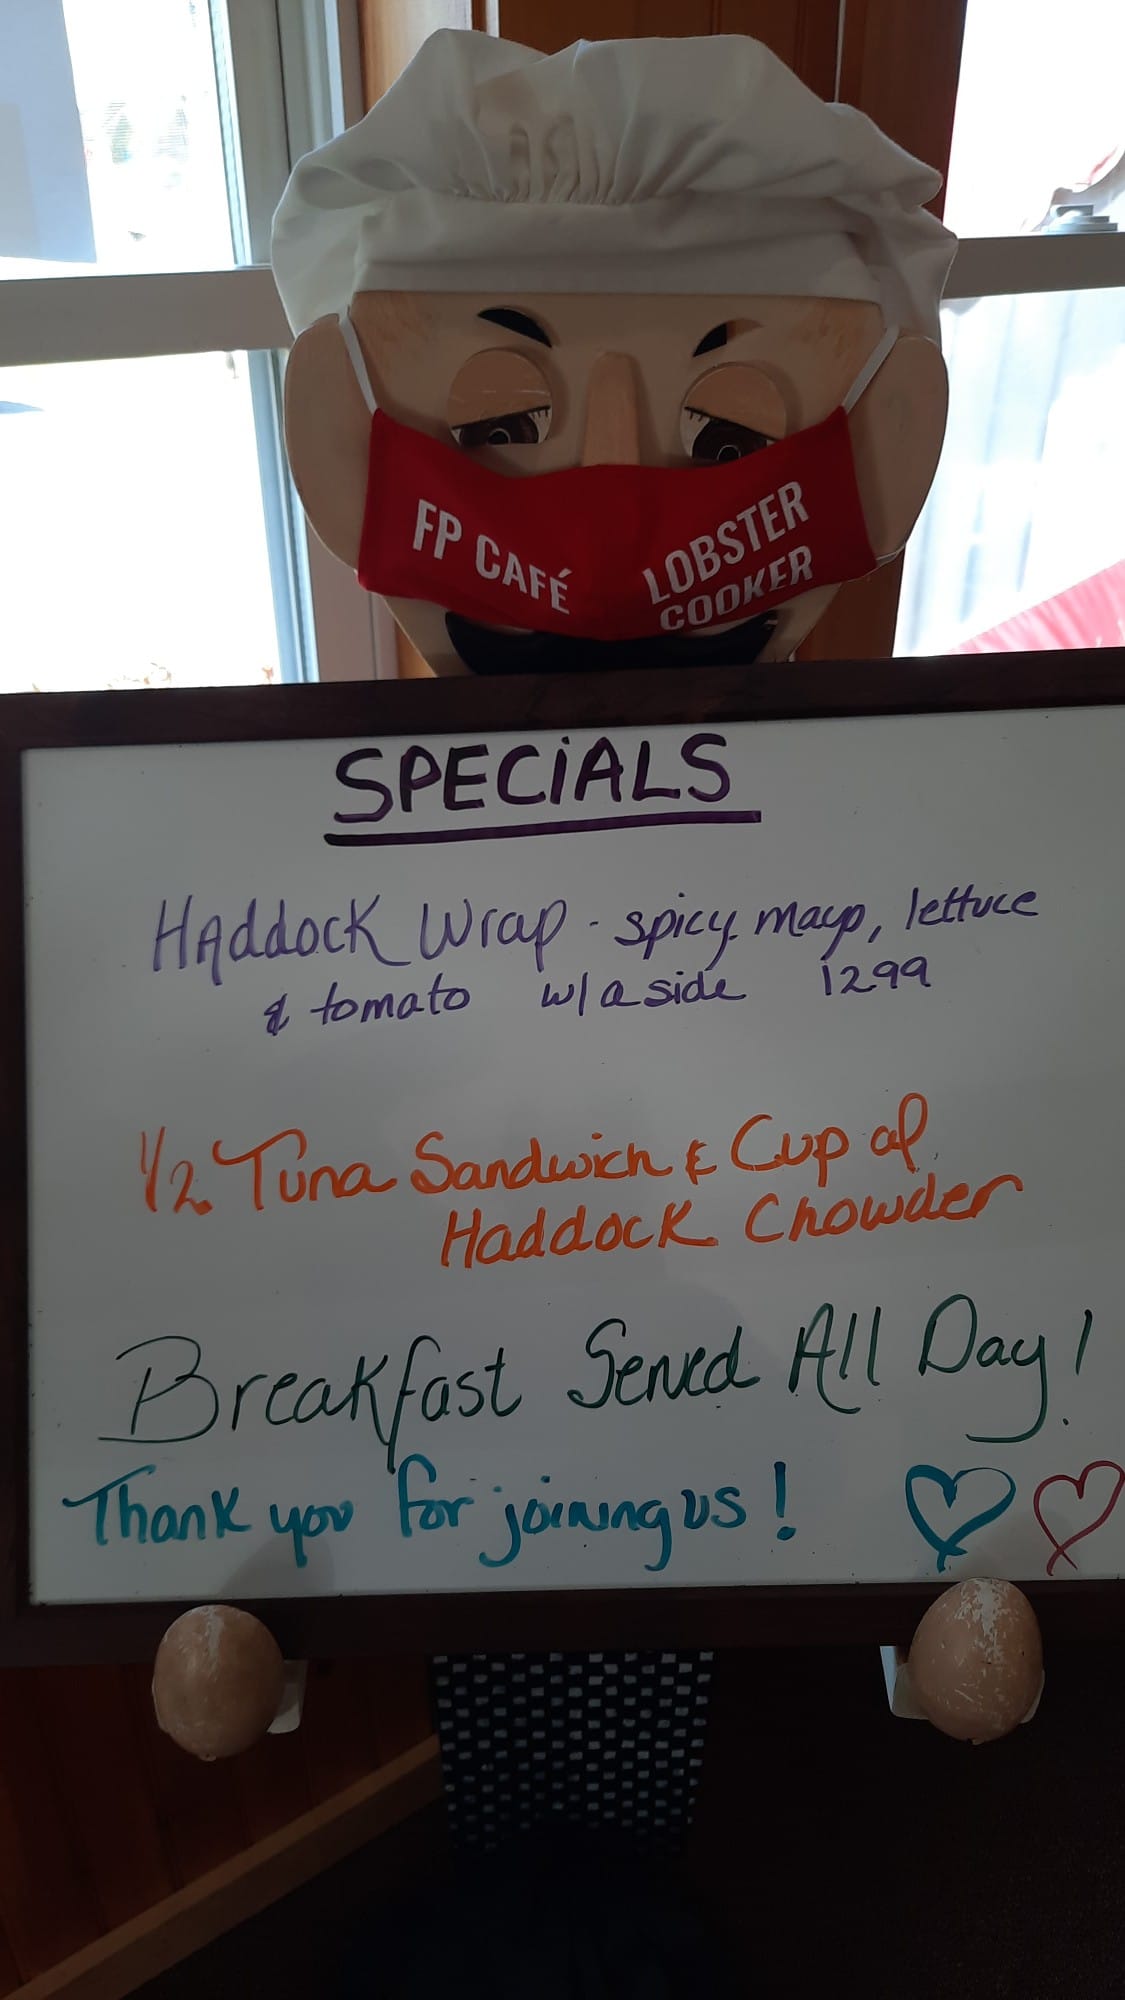 FP CAFÉ
LOBSTER
COOKER
SPECiALS
HAddocK Wrap - spicy mayo, lettuce
& tomato w/ a side 1299
1/2 Tuna Sandwich & Cup of
Haddock Chowder
Breakfast Served All Day!
Thank you for joining us!